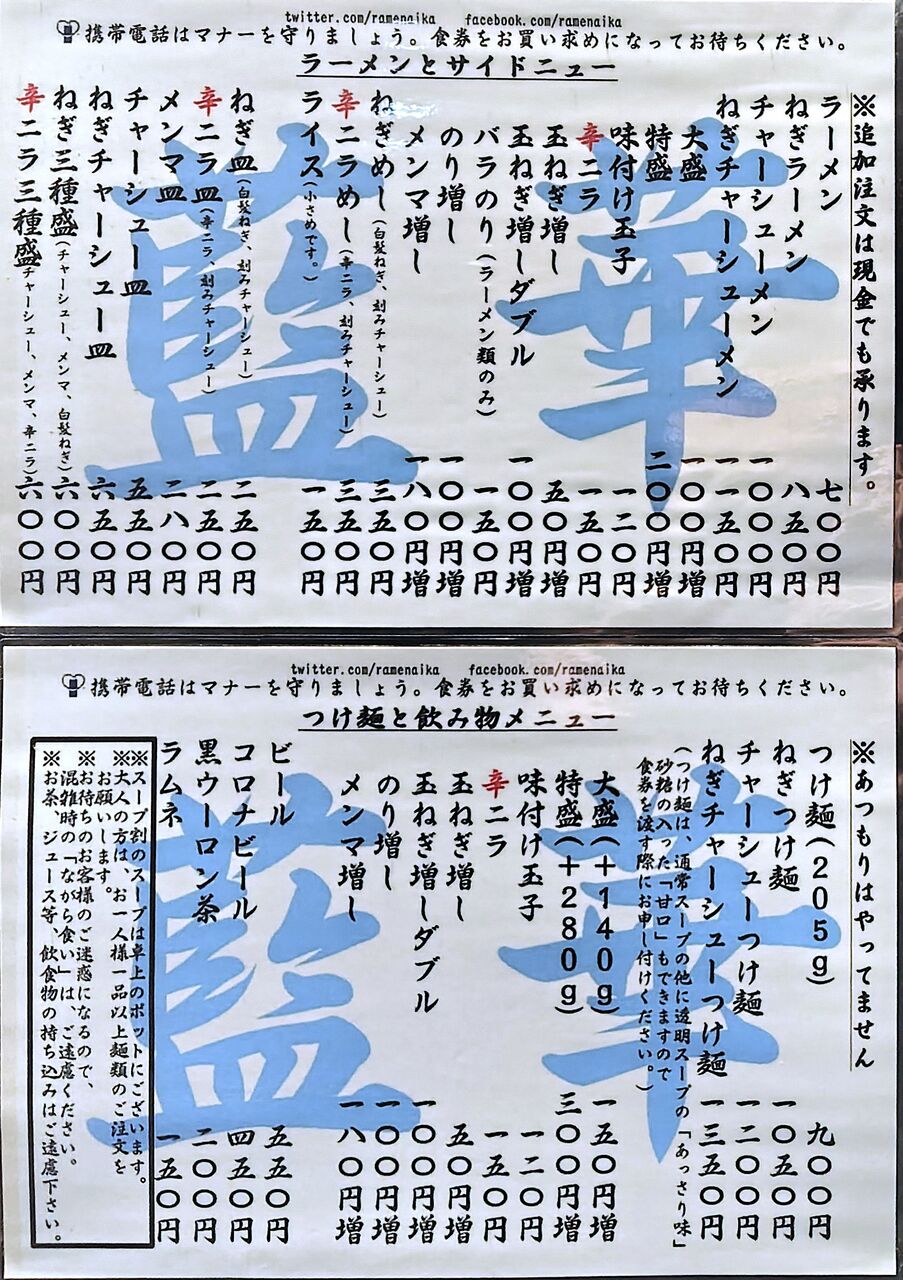 twitter.com/ramenaika facebook.com/ramenaika
携帯電話はマナーを守りましょう。食券をお買い求めになってお待ちください。
ラーメンとサイドニュー
※追加注文は現金でも承ります。
ラーメン 七〇〇円
ねぎラーメン 八五〇円
チャーシューメン 一〇〇〇円
ねぎチャーシューメン 一一五〇円
大盛 一〇〇円増
特盛 二〇〇円増
味付け玉子 一二〇円
辛ニラ 一五〇円
玉ねぎ増し 五〇円増
玉ねぎ増しダブル 一〇〇円増
バラのり(ラーメン類のみ) 一五〇円
のり増し 一〇〇円増
メンマ増し 一八〇円増
ねぎめし(白髪ねぎ、刻みチャーシュー) 三五〇円
辛ニラめし(辛ニラ、刻みチャーシュー) 三五〇円
ライス(小さめです。) 一五〇円
ねぎ皿(白髪ねぎ、刻みチャーシュー) 二五〇円
辛ニラ皿(辛ニラ、刻みチャーシュー) 二五〇円
メンマ皿 二八〇円
チャーシュー皿 五五〇円
ねぎチャーシュー皿 六五〇円
ねぎ三種盛(チャーシュー、メンマ、白髪ねぎ) 六〇〇円
辛ニラ三種盛(チャーシュー、メンマ、辛ニラ) 六〇〇円
藍華
twitter.com/ramenaika facebook.com/ramenaika
携帯電話はマナーを守りましょう。食券をお買い求めになってお待ちください。
つけ麺と飲み物メニュー
※あつもりはやってません
つけ麺(205g) 九〇〇円
ねぎつけ麺 一〇五〇円
チャーシューつけ麺 一二〇〇円
ねぎチャーシューつけ麺 一三五〇円
(つけ麺は、通常スープの他に透明スープの「あっさり味」
砂糖の入った「甘口」もできますので
食券を渡す際にお申し付けください。)
大盛(+140g) 一五〇円増
特盛(+280g) 三〇〇円増
味付け玉子 一二〇円
辛ニラ 一五〇円
玉ねぎ増し 五〇円増
玉ねぎ増しダブル 一〇〇円増
のり増し 一〇〇円増
メンマ増し 一八〇円増
ビール 五五〇円
コロナビール 四五〇円
黒ウーロン茶 二〇〇円
ラムネ 一五〇円
※スープ割のスープは卓上のポットにございます。
※大人の方は、お一人様一品以上麺類のご注文を
お願いします。
※お待ちのお客様のご迷惑になるので、
混雑時の「ながら食い」は、ご遠慮ください。
※お茶、ジュース等、飲食物の持ち込みはご遠慮下さい。
藍華